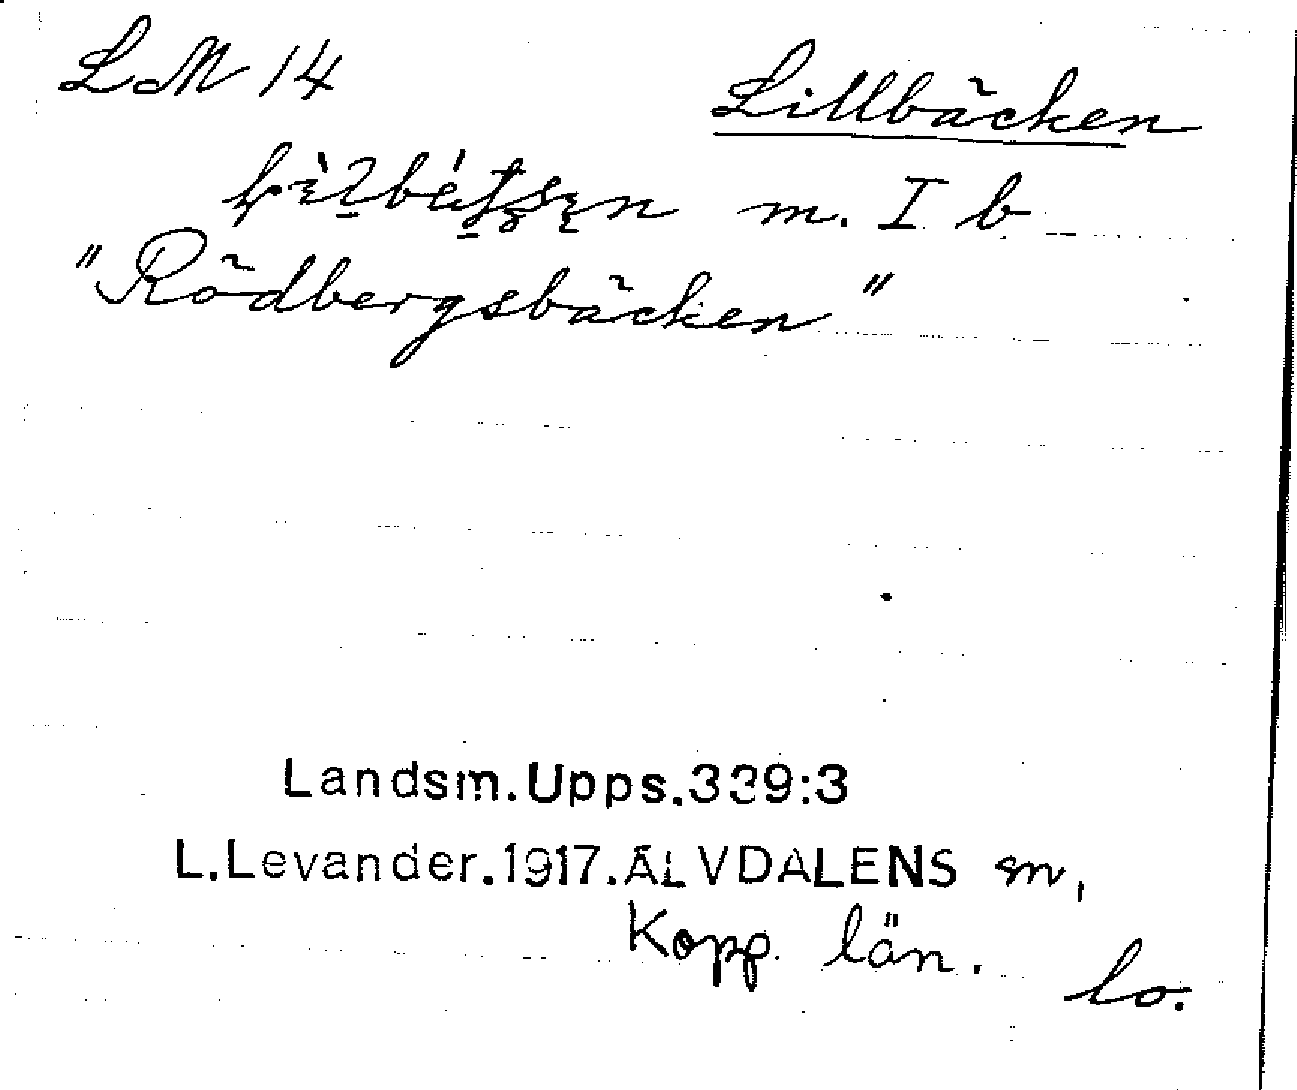 LM 14
Lillbäcken
m. I b
"Rödbergsbäcken"
Landsm.Upps.339:3
L.Levander.1917.ÄLVDALENS sn,
Kopp. län.
lo.